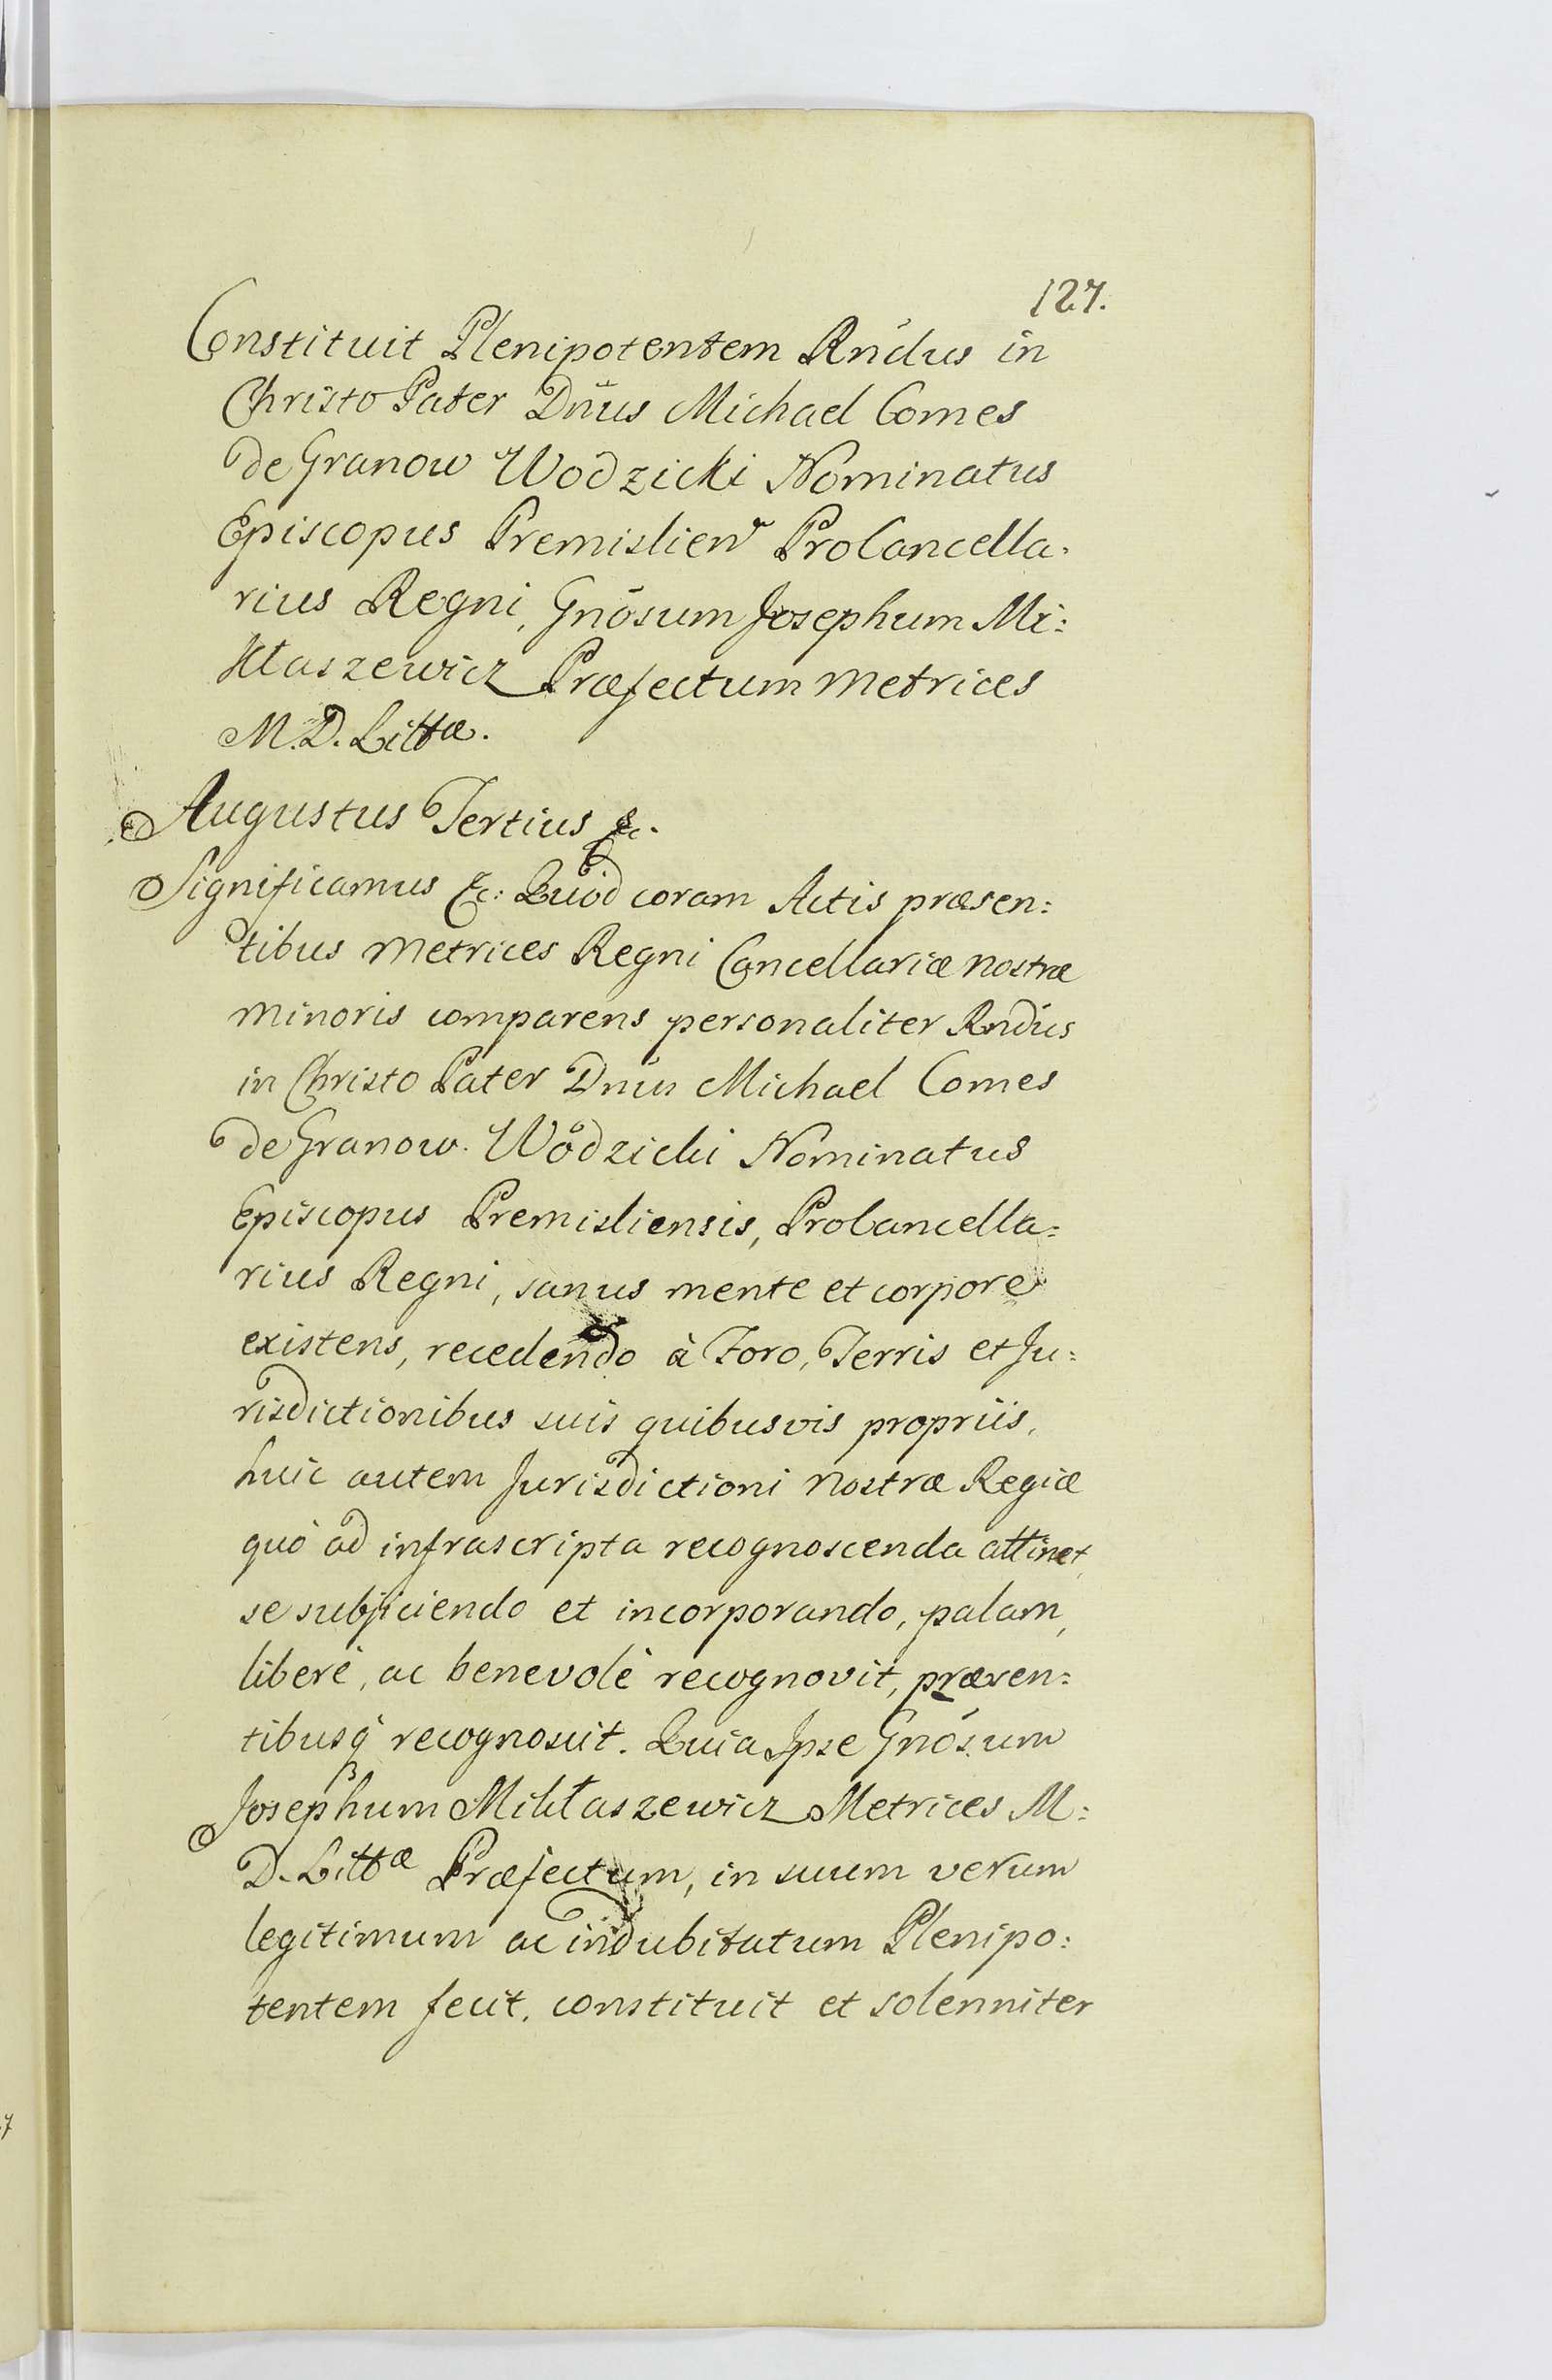 127.
Constituit Plenipotentem Rndus in
Christo Pater Dnus Michael Comes
de Granow Wodzicki Nominatus
Episcopus Premislien ProCancella-
rius Regni, Gnosum Josephum Mi:
kłaszewicz Præfectum Metrices
M. D. Littæ.
Augustus Tertius &c.
Significamus &c: Quod coram Actis præsen:
tibus Metrices Regni Cancellariæ nostræ
minoris comparens personaliter Rndus
in Christo Pater Dnus Michael Comes
de Granow Wodzicki Nominatus
Episcopus Premisliensis, ProCancella:
rius Regni, sanus mente et corpore
existens, recedendo à Foro, Terris et Ju:
risdictionibus suis quibusvis propriis,
huic autem Jurisdictioni nostræ Regiæ
quò ad infrascripta recognoscenda attinet,
se subjiciendo et incorporando, palam,
liberè, ac benevolè recognovit, præsen:
tibusq recognoscit. Quia Ipse Gnosum
Josephum Mikłaszewicz Metrices M:
D. Littæ Præfectum, in suum verum
legitimum ac indubitatum Plenipo:
tentem fecit, constituit et solenniter